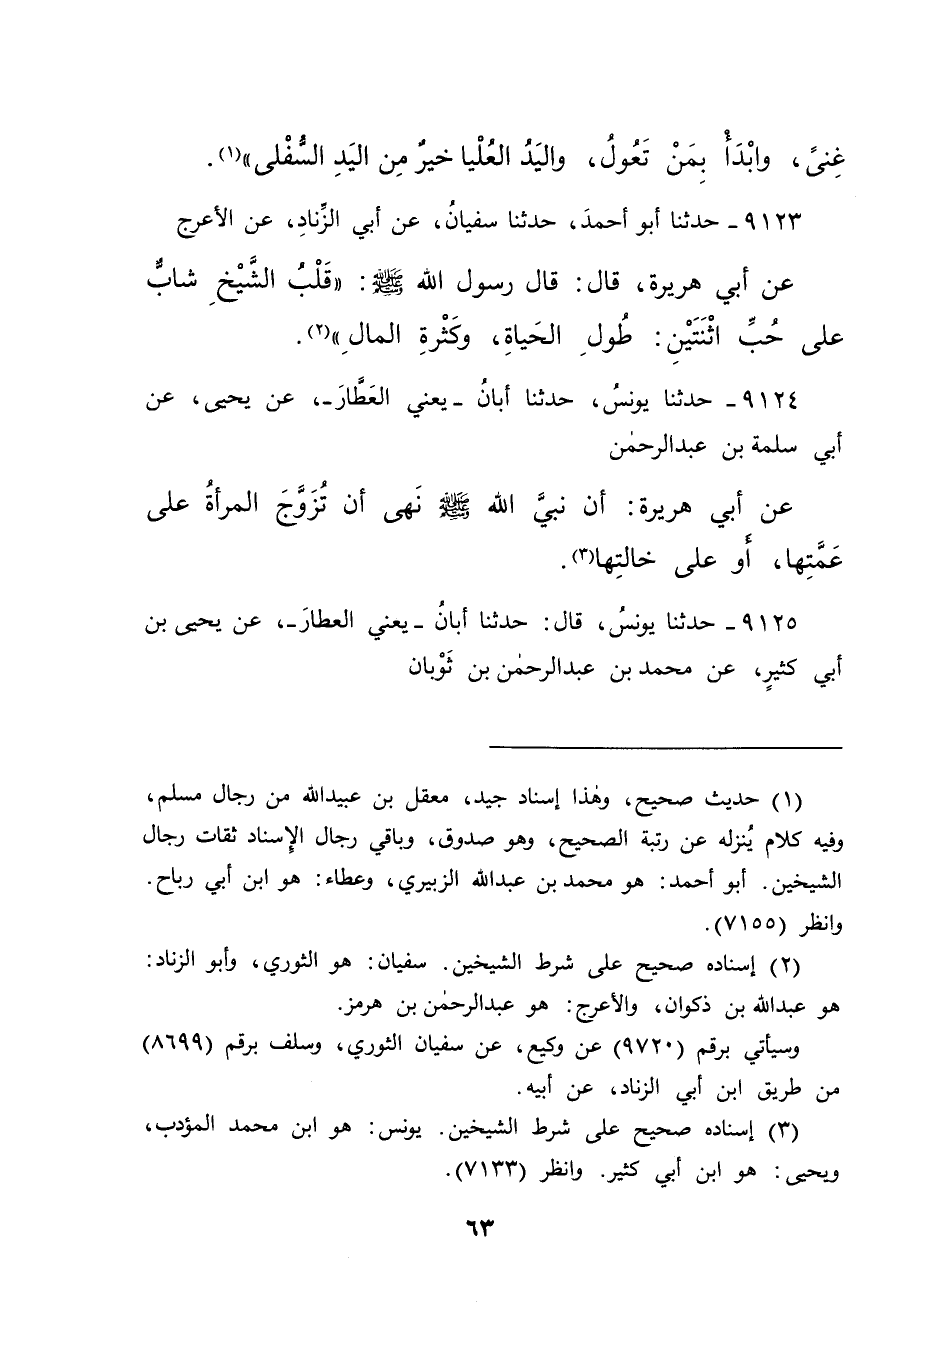 غِنىً، وابْدَأْ بِمَنْ تَعُولُ، واليَدُ العُلْيا خيرٌ مِن اليَدِ السُّفْلى»(١).
٩١٢٣ـ حدثنا أبو أحمدَ، حدثنا سفيانُ، عن أبي الزِّنادِ، عن الأعرج
عن أبي هريرة، قال: قال رسول الله ﷺ: «قَلْبُ الشَّيْخِ شابٌّ
على حُبِّ اثْنَتَيْنِ: طُولِ الحَياةِ، وكَثْرةِ المالِ»(٢).
٩١٢٤ـ حدثنا يونسُ، حدثنا أبانُ ـيعني العَطَّارَـ، عن يحيى، عن
أبي سلمة بن عبدالرحمٰن
عن أبي هريرة: أن نبيَّ الله ﷺ نَهى أن تُزَوَّجَ المرأةُ على
عَمَّتِها، أَو على خالتِها(٣).
٩١٢٥ـ حدثنا يونسُ، قال: حدثنا أبانُ ـيعني العطارَـ، عن يحيى بن
أبي كثيرٍ، عن محمد بن عبدالرحمٰن بن ثَوْبان
(١) حديث صحيح، وهٰذا إسناد جيد، معقل بن عبيدالله من رجال مسلم،
وفيه كلام يُنزله عن رتبة الصحيح، وهو صدوق، وباقي رجال الإسناد ثقات رجال
الشيخين. أبو أحمد: هو محمد بن عبدالله الزبيري، وعطاء: هو ابن أبي رباح.
وانظر (٧١٥٥).
(٢) إسناده صحيح على شرط الشيخين. سفيان: هو الثوري، وأبو الزناد:
هو عبدالله بن ذكوان، والأعرج: هو عبدالرحمٰن بن هرمز.
وسيأتي برقم (٩٧٢٠) عن وكيع، عن سفيان الثوري، وسلف برقم (٨٦٩٩)
من طريق ابن أبي الزناد، عن أبيه.
(٣) إسناده صحيح على شرط الشيخين. يونس: هو ابن محمد المؤدب،
ويحيى: هو ابن أبي كثير. وانظر (٧١٣٣).
٦٣